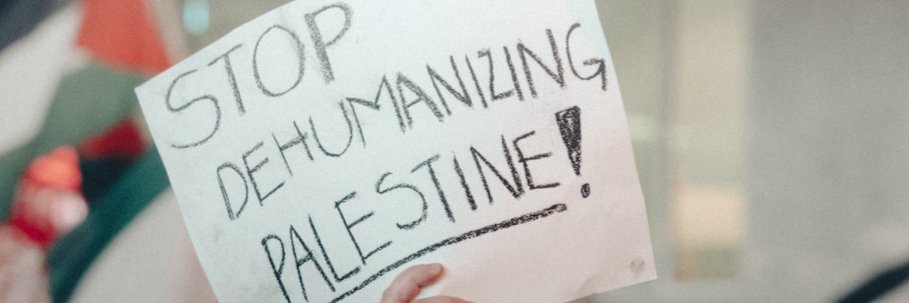 STOP
DEHUMANIZING
PALESTINE!